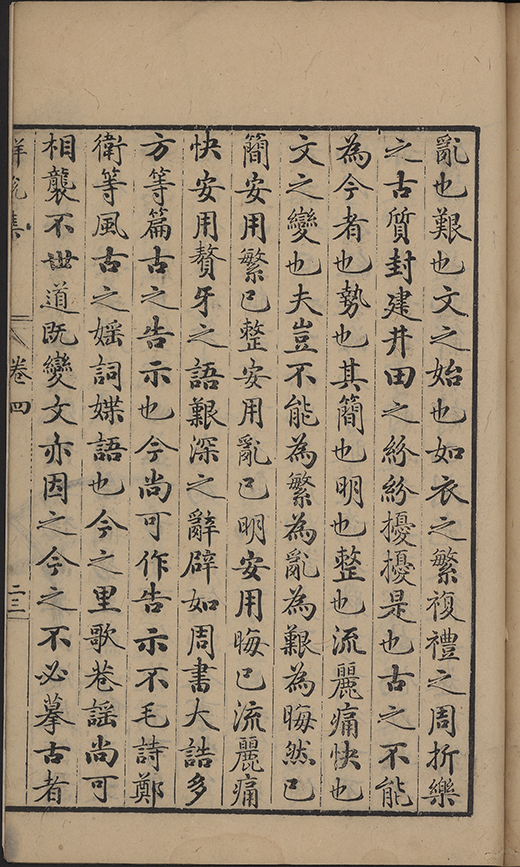 亂也艱也文之始也如衣之繁複禮之周折樂
之古質封建井田之紛紛擾擾是也古之不能
為今者也勢也其簡也明也整也流麗痛快也
文之變也夫豈不能為繁為亂為艱為晦然已
簡安用繁已整安用亂已明安用晦已流麗痛
快安用贅牙之語艱深之辭辟如周書大誥多
方等篇古之告示也今尚可作告示不毛詩鄭
衛等風古之媱詞媟語也今之里歌巷謠尚可
相襲不世道既變文亦因之今之不必摹古者
集 卷四 二三